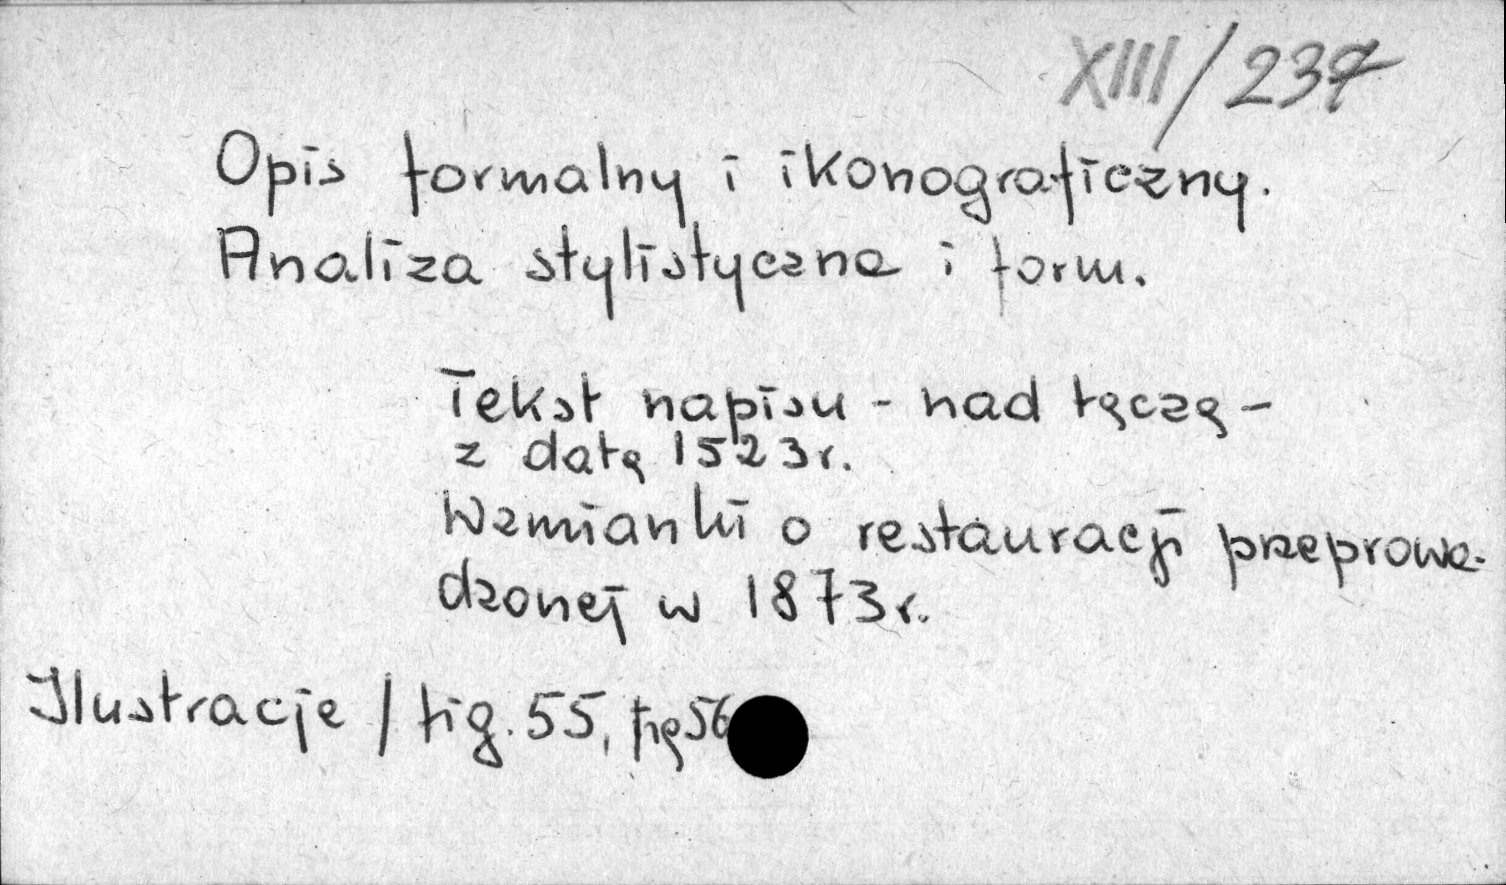 XIII/237
Opis formalny i ikonograficzny.
Analiza stylistyczna i form.
Tekst napisu - nad tęczą -
z datą 1523 r.
Wzmianki o restauracji przeprowa-
dzonej w 1873 r.
Ilustracje / fig. 55, fig 56